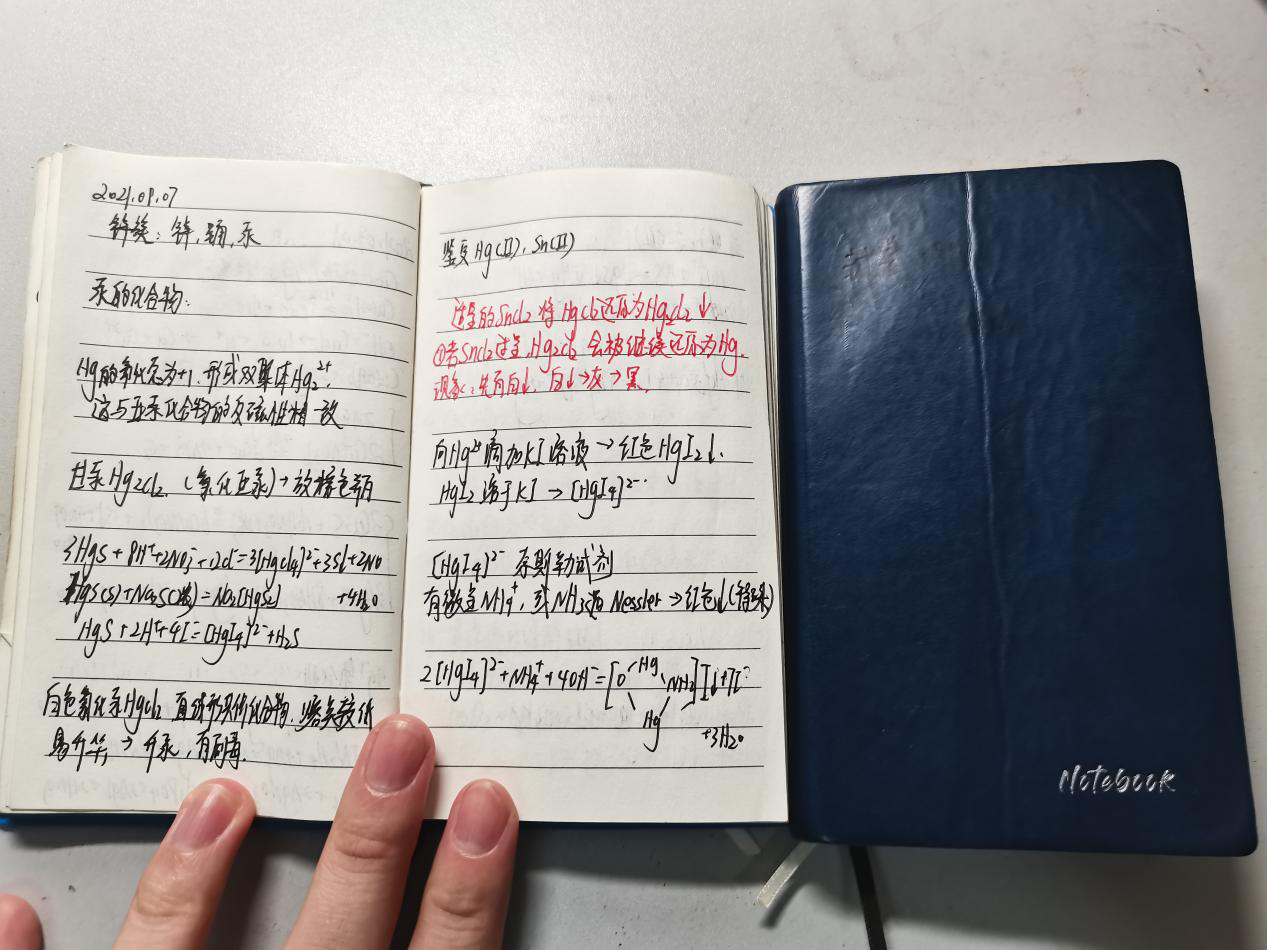 2021.09.07
锌族：锌，镉，汞
汞的化合物：
Hg的氧化态为+1，形成双聚体Hg₂²⁺，
这与亚汞化合物的反磁性相一致
甘汞Hg₂Cl₂（氯化亚汞）→放棕色瓶
3HgS+8H⁺+2NO₃⁻+12Cl⁻=3[HgCl₄]²⁻+3S↓+2NO
+4H₂O
HgS(s)+Na₂S(浓)=Na₂[HgS₂]
HgS+2H⁺+4I⁻=[HgI₄]²⁻+H₂S
白色氯化汞HgCl₂ 直线形共价化合物，熔点较低
易升华→升汞，有剧毒.
鉴定Hg(II)，Sn(II)
适量的SnCl₂将HgCl₂还原为Hg₂Cl₂↓
①若SnCl₂过量，Hg₂Cl₂会被继续还原为Hg.
现象：先有白↓，白↓→灰→黑.
向Hg²⁺滴加KI溶液→红色HgI₂↓.
HgI₂溶于KI→[HgI₄]²⁻.
[HgI₄]²⁻ 奈斯勒试剂
有微量NH₄⁺，或NH₃遇Nessler→红色↓
2[HgI₄]²⁻+NH₄⁺+4OH⁻=[O Hg Hg NH₂]I↓+7I⁻
+3H₂O
Notebook